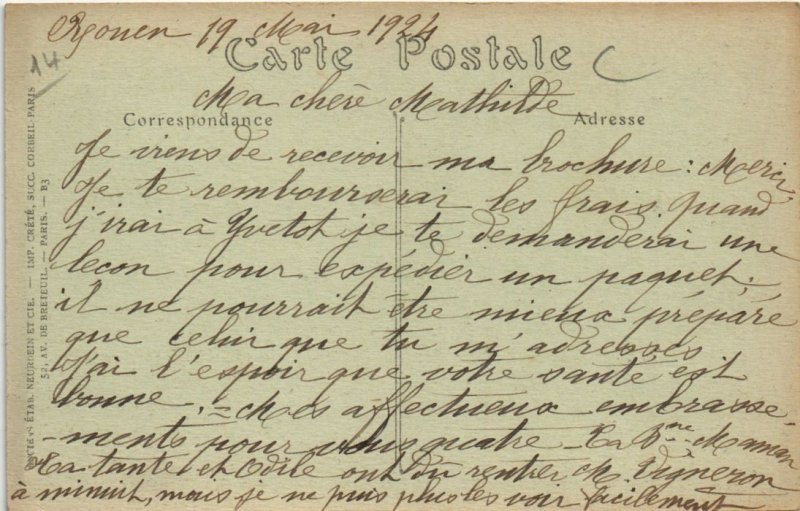 Rouen 19 Mai 1924
14
Carte Postale
Ma chère Mathilde
Correspondance
Adresse
Je viens de recevoir ma brochure : Merci
Je te rembourserai les frais quand
j'irai à Yvetot je te demanderai une
leçon pour expédier un paquet ;
il ne pourrait être mieux préparé
que celui que tu m'adresses
J'ai l'espoir que votre santé est
bonne. = Mes affectueux embrasse-
-ments pour vous quatre - Ta Bne Maman
Ta tante et Odile ont dû rentrer M. Vigneron
à minuit, mais je ne puis plus les voir facilement
ÉTAB. NEURDEIN ET CIE. — IMP. CRÉTÉ, SUCC. CORBEIL-PARIS
52, AV. DE BRETEUIL. — PARIS. — B3